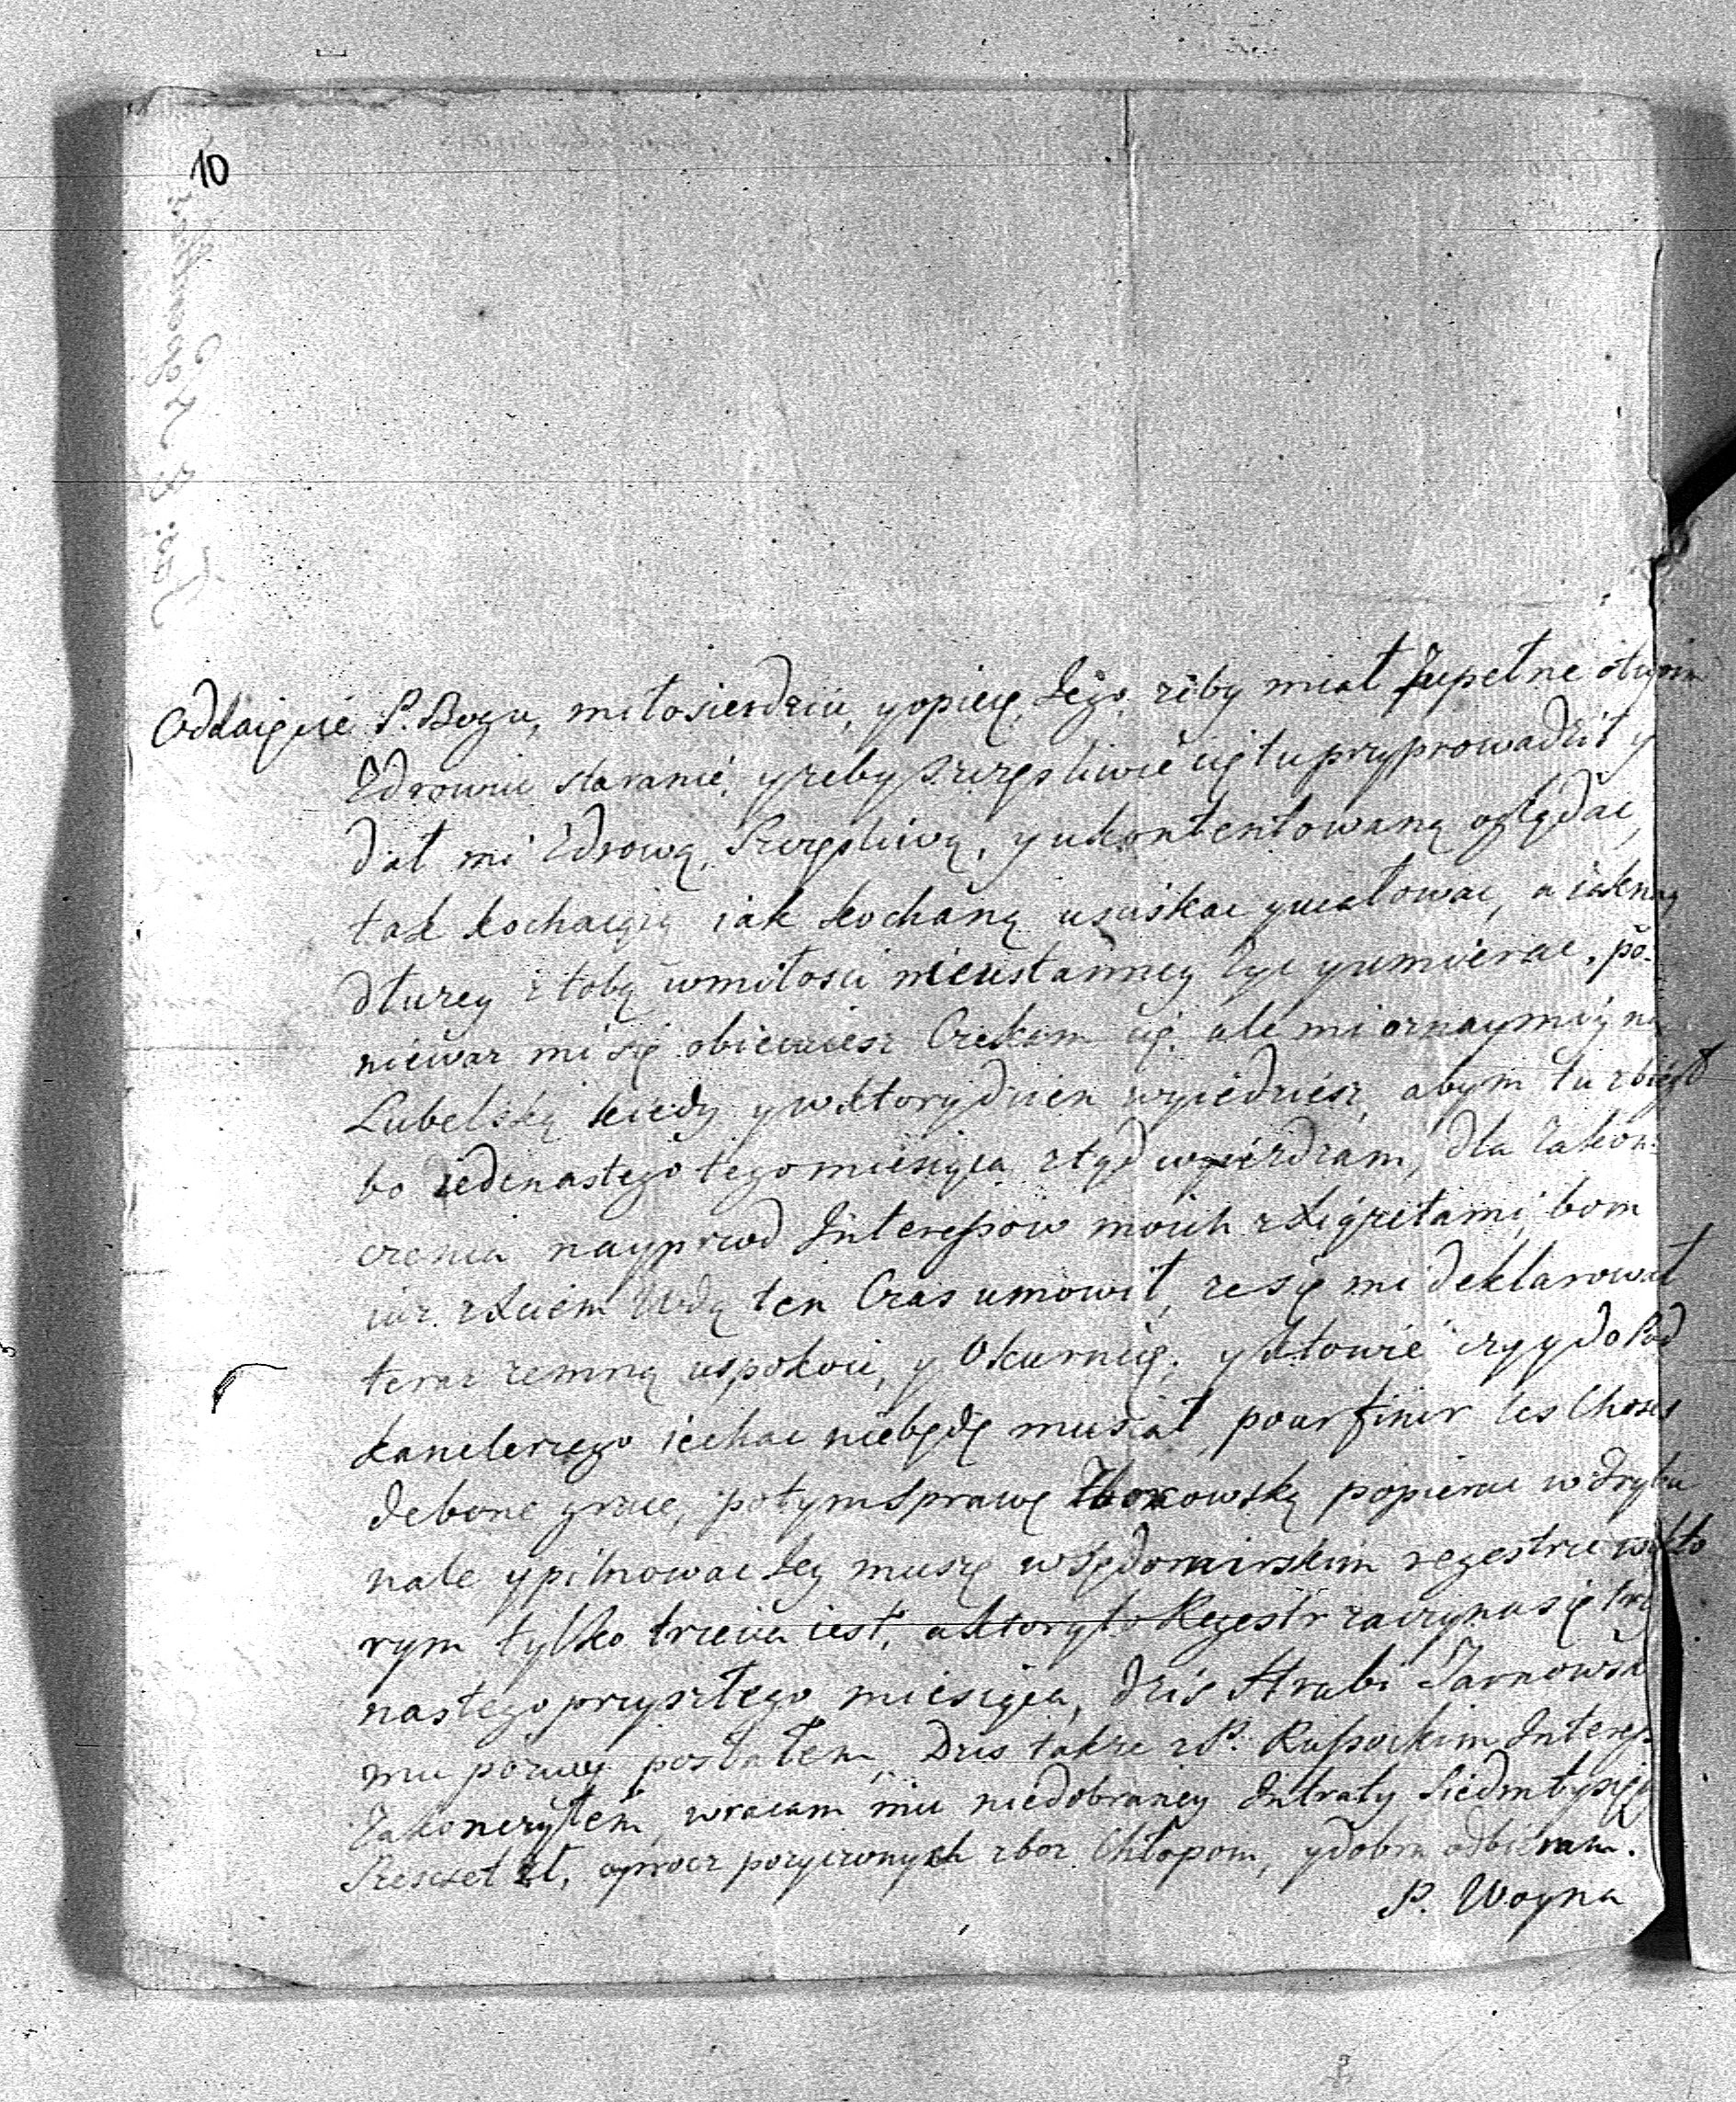 10
Oddaię cię P. Bogu, miłosierdziu, y opiece Jego, żeby miał Zupełne otwoim
Zdrowiu staranie, y zeby szczęsliwie cię tu przyprowadził y
dał mi Zdrową, Szczęsliwą, y ukontentowaną oglądac,
tak kochaiącą iak kochaną usciskac y ucałowac, a iaknay
dłuzey z tobą w miłosci nieustanney życ y umierac, po-
niewaz mi się obiecuiesz Czekam cię, ale mi oznaymiy na
Lubelską kiedy y w ktory dzien wyiedziesz, abym tu zbiegł
bo iedenastego tego miesiąca ztąd wyiezdzam, dla Zakon-
czenia nayprzod Interessow moich z Ligęzitami, bom
iuz z Wdą ten Czas umowił, ze się mi deklarował
teraz zemną uspokoic, y Okurnicę, y ktowie czy y do Pod
kanclerzego iechac niebędę musiał, pour finir les Choses
de bone grace, potym sprawę Zborowską popierac w Trybu
nale y pilnowac Jey muszę w Sędomirskim regestrze w kto
rym tylko trzecia iest, a ktory to Regestr zaczyna się trzy
nastego przyszłego miesiąca, dzis Hrabi Tarnowskie
mu pozwy posłałem, Dzis takze z P. Russockim Interes
Zakonczyłem, wracam mu niedobraney Intraty Siedm tysięcy
Szescset zł, oprocz pozyczonych zboz Chłopom, y dobra odbieram.
P. Woyna